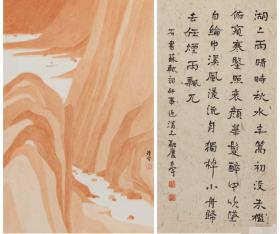 湖上雨晴時秋水半篙初没朱檻
俯窺寒鑒照衰顏華髮醉中吹墜
白綸巾溪風漾流月獨棹小舟歸
去任煙雨飄兀
右書蘇軾詞好事近湖上